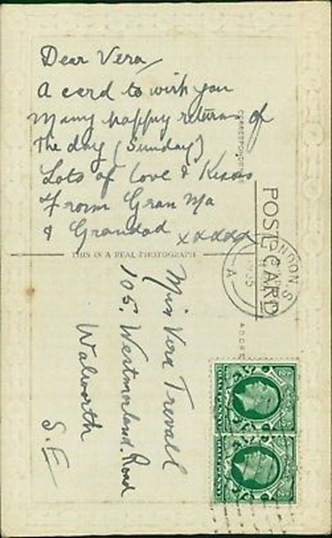 Dear Vera
A card to wish you
Many happy returns of
The day (Sunday)
Lots of love & Kisses
From Gran Ma
& Grandad xxxxx
CORRESPONDENCE
POST CARD
THIS IS A REAL PHOTOGRAPH
ADDRE
LONDON. S.
1935
A
Miss Vera Trevall
105. Westmorland. Road
Walworth
S. E